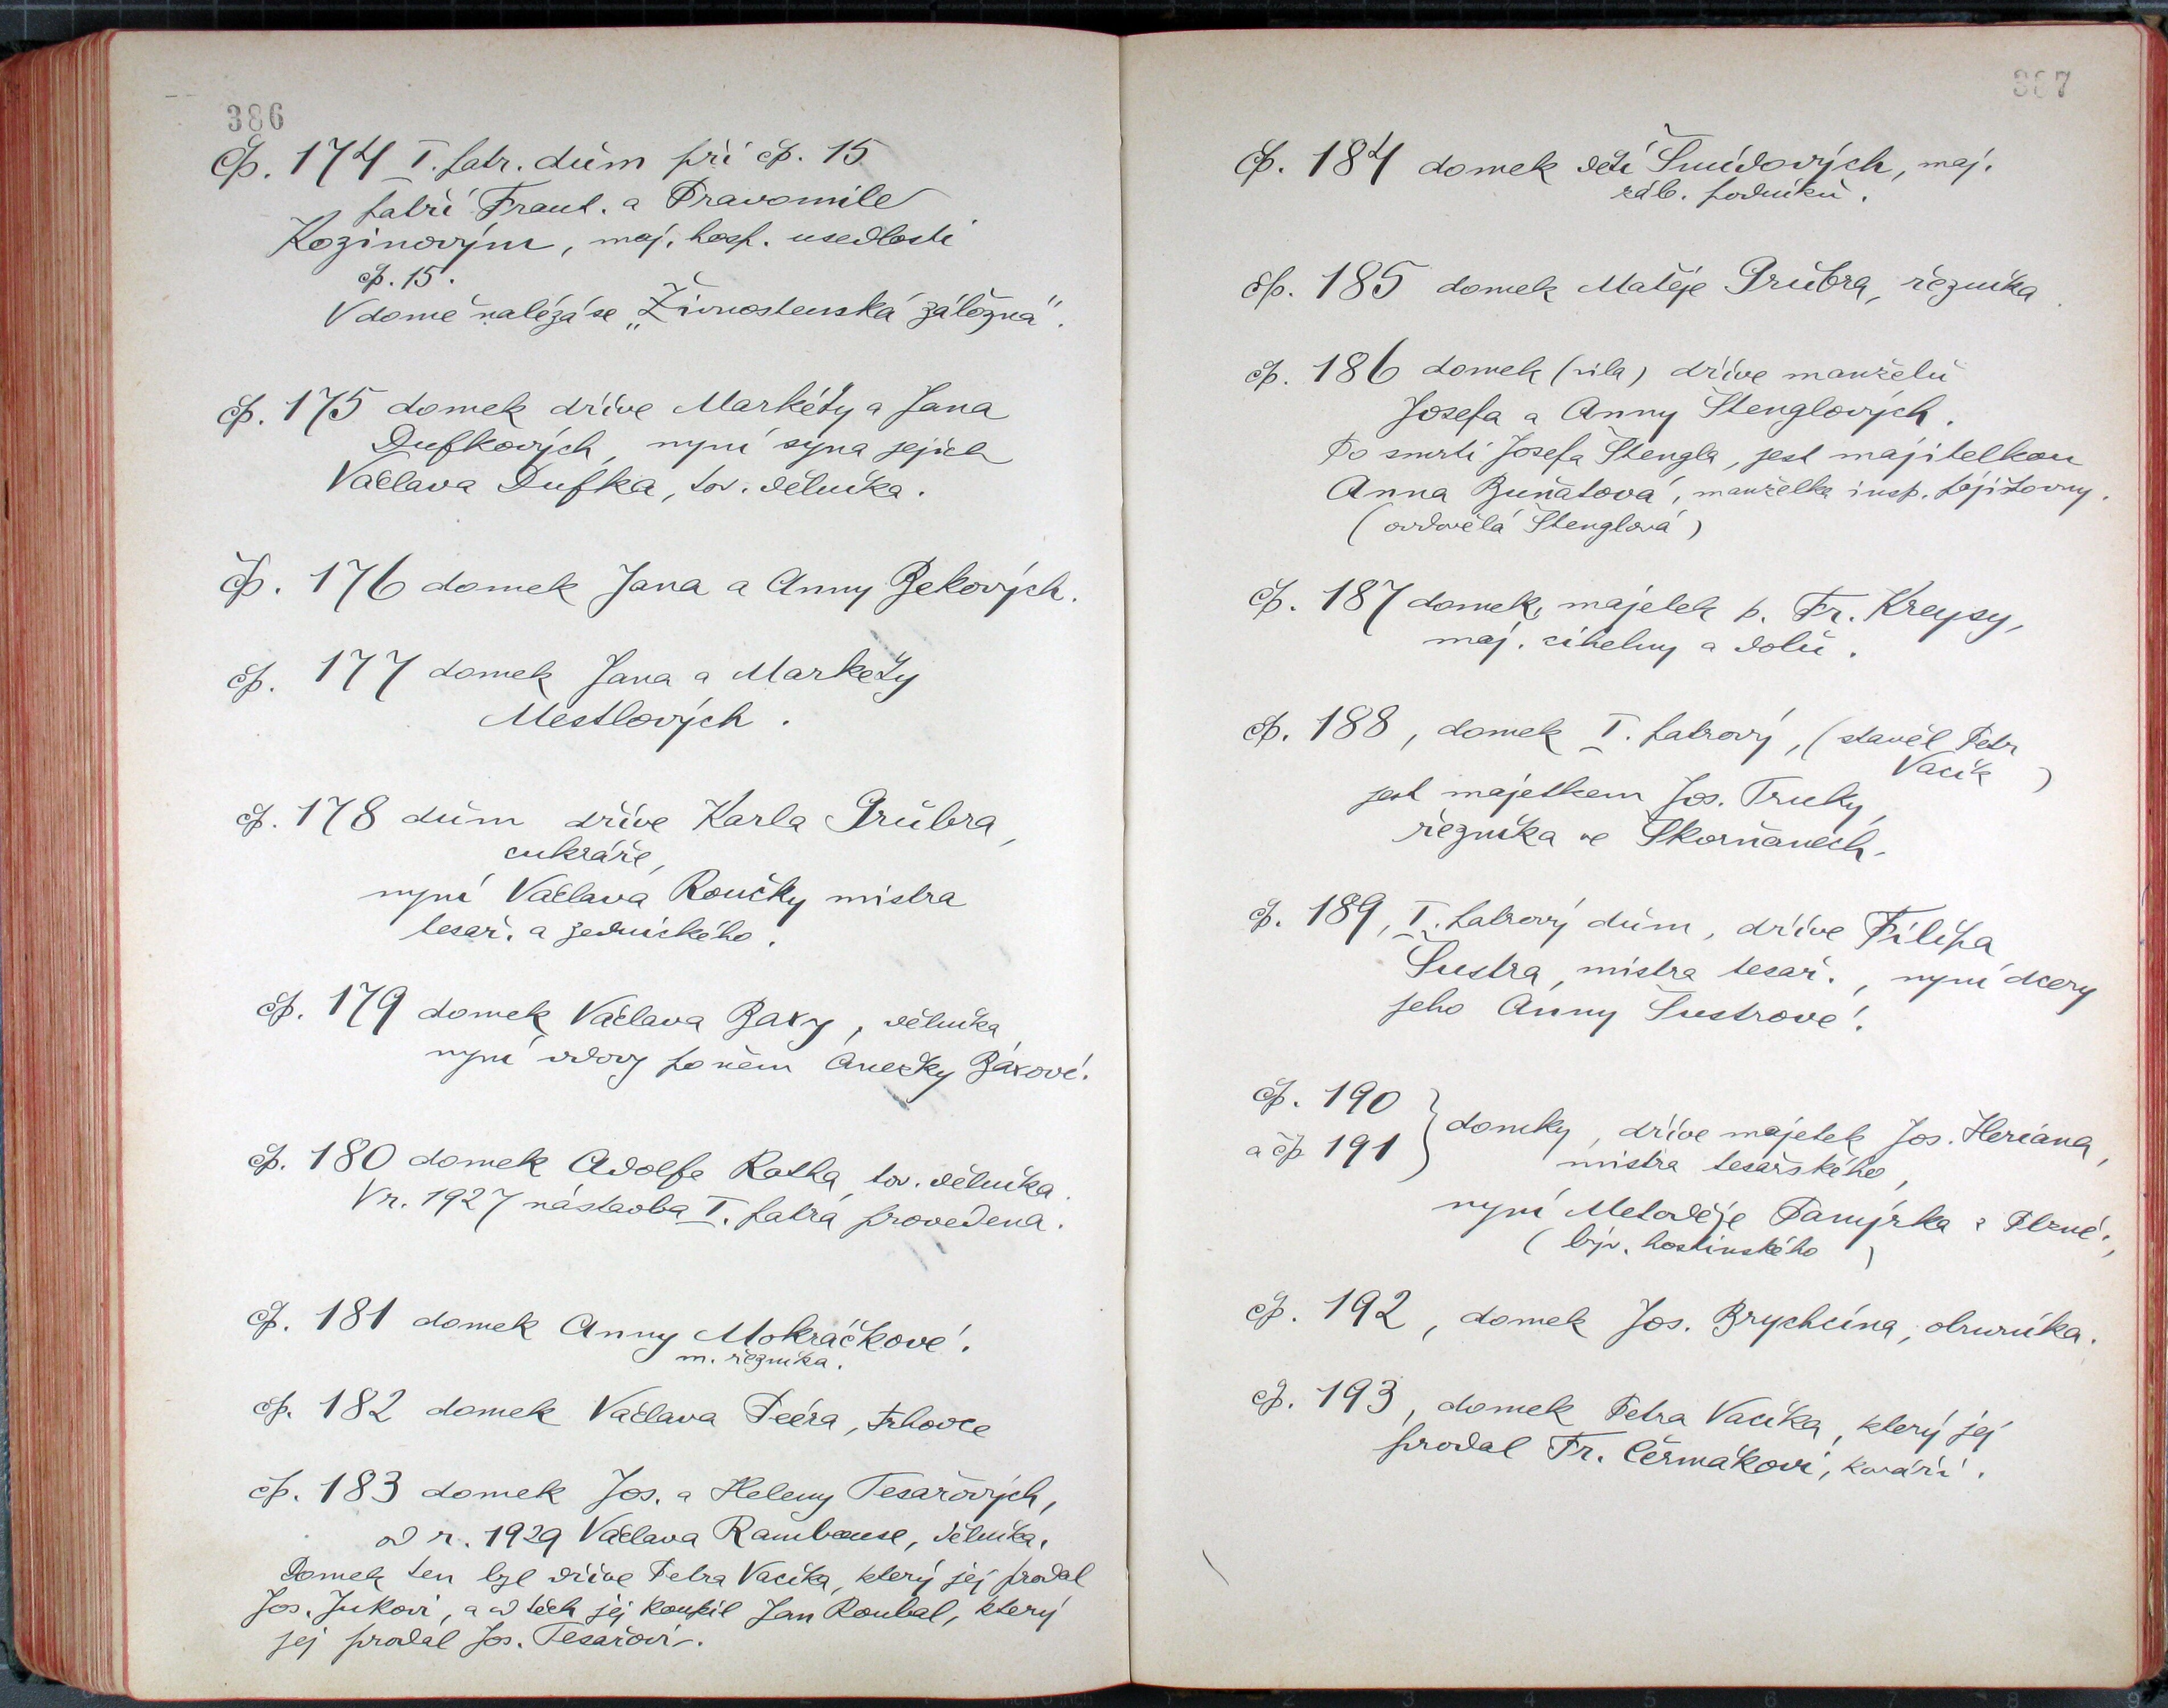 386
Čp. 174 I. patr. dům při čp. 15
patří Frant. a Pravomile
Kozinovým, maj. hosp. usedlosti
čp. 15.
V domě nalézá se „Živnostenská záložna".
čp. 175 domek dříve Markéty a Jana
Dufkových, nyní syna jejich
Václava Dufka, tov. dělníka.
čp. 176 domek Jana a Anny Bekových.
čp. 177 domek Jana a Markéty
Mestlových.
čp. 178 dům dříve Karla Grübra,
cukráře,
nyní Václava Roučky mistra
tesař. a zednického.
čp. 179 domek Václava Baxy, dělníka
nyní vdovy po něm Anežky Baxové.
čp. 180 domek Adolfa Rotha, tov. dělníka.
V r. 1927 nástavba I. patra provedena.
čp. 181 domek Anny Mokráčkové.
m. řezníka.
čp. 182 domek Václava Peéra, trhovce
čp. 183 domek Jos. a Heleny Tesařových,
od r. 1929 Václava Rambouse, dělníka.
Domek ten byl dříve Petra Vacíka, který jej prodal
Jos. Jukovi, a od těch jej koupil Jan Roubal, který
jej prodal Jos. Tesařovi.
387
Čp. 184 domek dětí Šmídových, maj.
záb. podniků.
čp. 185 domek Matěje Grübra, řezníka
čp. 186 domek (vila) dříve manželů
Josefa a Anny Štenglových.
Po smrti Josefa Štengla, jest majitelkou
Anna Buňatová, manželka insp. pojišťovny.
(ovdovělá Štenglová)
čp. 187 domek, majetek p. Fr. Kreysy,
maj. cihelny a dolů.
čp. 188, domek I. patrový, (stavěl Petr
Vacík)
jest majetkem Jos. Trnky,
řezníka ve Skorňanech.
čp. 189, I. patrový dům, dříve Filipa
Šustra, mistra tesař., nyní dcery
jeho Anny Šustrové.
čp. 190
a čp. 191 } domky, dříve majetek Jos. Heriana,
mistra tesařského,
nyní Metoděje Panýrka z Plzně,
(býv. hostinského)
čp. 192, domek Jos. Brychcína, obuvníka.
čp. 193, domek Petra Vacíka, který jej
prodal Fr. Čermákovi, kováři.